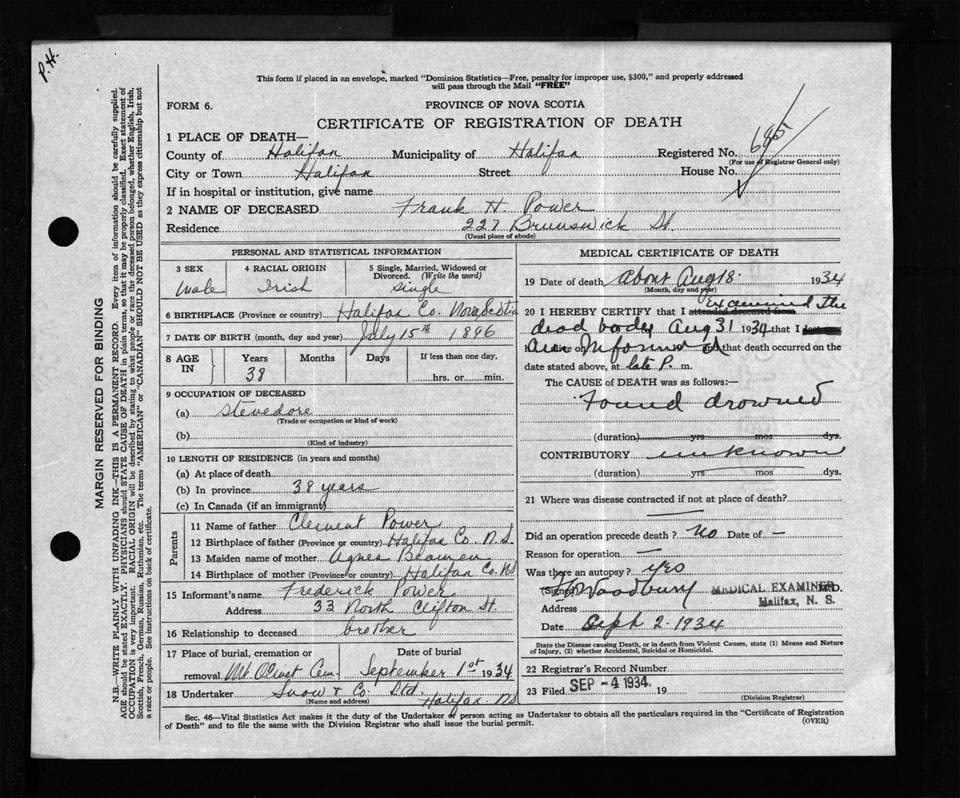 P.H.
This form if placed in an envelope, marked "Dominion Statistics—Free, penalty for improper use, $300," and properly addressed
will pass through the Mail "FREE"
FORM 6.
PROVINCE OF NOVA SCOTIA
CERTIFICATE OF REGISTRATION OF DEATH
1 PLACE OF DEATH—
County of Halifax Municipality of Halifax Registered No. 685
(For use of Registrar General only)
City or Town Halifax Street House No.
If in hospital or institution, give name
2 NAME OF DECEASED Frank H Power
Residence 227 Brunswick St.
(Usual place of abode)
PERSONAL AND STATISTICAL INFORMATION
3 SEX 4 RACIAL ORIGIN 5 Single, Married, Widowed or
Divorced. (Write the word)
Male Irish Single
6 BIRTHPLACE (Province or country) Halifax Co. Nova Scotia
7 DATE OF BIRTH (month, day and year) July 15th 1896
8 AGE IN Years Months Days If less than one day,
38 hrs. or min.
9 OCCUPATION OF DECEASED
(a) Stevedore
(Trade or occupation or kind of work)
(b)
(Kind of industry)
10 LENGTH OF RESIDENCE (in years and months)
(a) At place of death
(b) In province 38 years
(c) In Canada (if an immigrant)
Parents
11 Name of father Clement Power
12 Birthplace of father (Province or country) Halifax Co. N.S.
13 Maiden name of mother Agnes
14 Birthplace of mother (Province or country) Halifax Co. NS
15 Informant's name Frederick Power
Address 33 North Clifton St.
16 Relationship to deceased brother
17 Place of burial, cremation or Date of burial
removal Mt. Olivet Cem. September 1st 1934
18 Undertaker Snow & Co. Ltd. Halifax NS
(Name and address)
MEDICAL CERTIFICATE OF DEATH
19 Date of death About Aug 18. 1934
(Month, day and year)
20 I HEREBY CERTIFY that I attended deceased from Examined the
dead body Aug 31 1934 that I last saw
am Informed and that death occurred on the
date stated above, at late P. m.
The CAUSE of DEATH was as follows:—
Found drowned
(duration) yrs mos dys.
CONTRIBUTORY unknown
(duration) yrs mos dys.
21 Where was disease contracted if not at place of death?
Did an operation precede death? No Date of —
Reason for operation —
Was there an autopsy? yes
(Signed) Woodbury MEDICAL EXAMINER M.D.
Address Halifax, N. S.
Date Sept 2. 1934
State the Disease causing Death, or in death from Violent Causes, state (1) Means and Nature
of Injury, (2) whether Accidental, Suicidal or Homicidal.
22 Registrar's Record Number
23 Filed SEP - 4 1934. 19
(Division Registrar)
Sec. 46—Vital Statistics Act makes it the duty of the Undertaker or person acting as Undertaker to obtain all the particulars required in the "Certificate of Registration
of Death" and to file the same with the Division Registrar who shall issue the burial permit.
(OVER)
MARGIN RESERVED FOR BINDING
N.B.—WRITE PLAINLY WITH UNFADING INK—THIS IS A PERMANENT RECORD. Every item of information should be carefully supplied.
AGE should be stated EXACTLY. PHYSICIANS should STATE CAUSE OF DEATH in plain terms, so that it may be properly classified. Exact statement of
OCCUPATION is very important. RACIAL ORIGIN will be described by stating to what people or race the deceased person belonged, whether English, Irish,
Scottish, French, German, Russian, Ruthenian, etc. The terms "AMERICAN" or "CANADIAN" SHOULD NOT BE USED as they express citizenship but not
a race or people. See instructions on back of certificate.